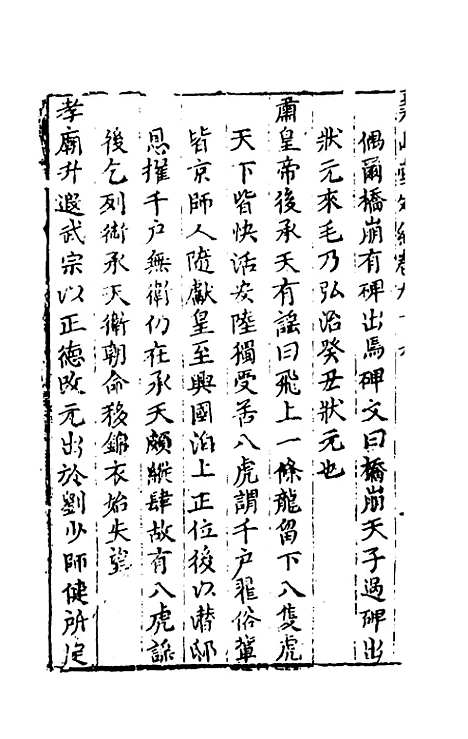 偶爾橋崩有碑出焉碑文曰橋崩天子過碑出
狀元來毛乃弘治癸丑狀元也
肅皇帝後承天有謠曰飛上一條龍留下八隻虎
天下皆快活安陸獨受苦八虎謂千戶翟俗輩
皆京師人隨獻皇至興國洎上正位後以潛邸
恩擢千戶無衛仍在承天頗縱肆故有八虎謡
後乞列衛承天衛朝命移錦衣始失望
孝廟升遐武宗以正德改元出於劉少師健所定